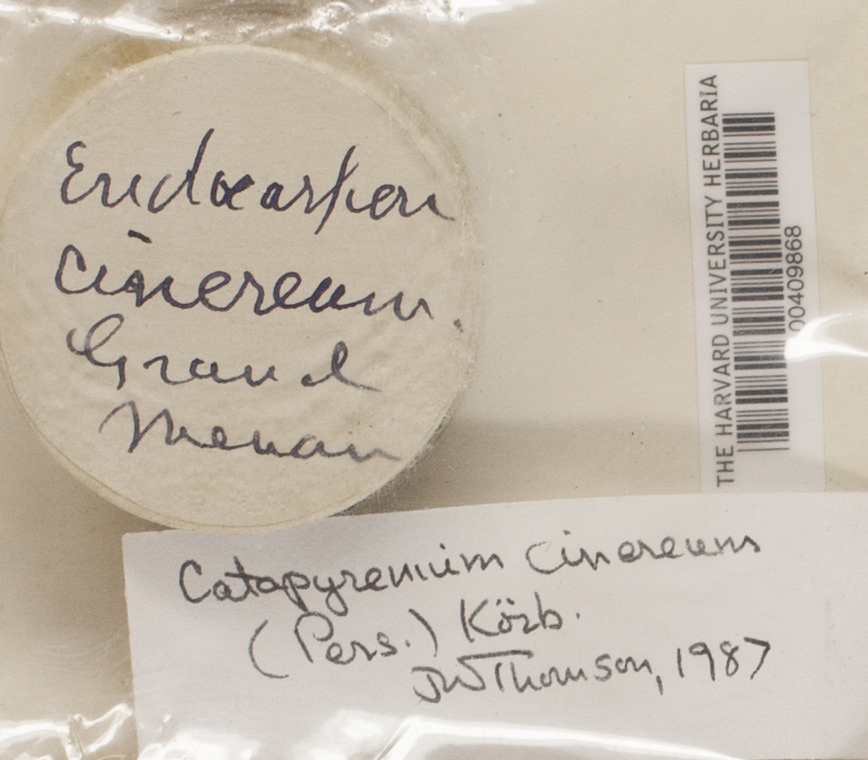 Endocarpon
cinereum.
Grand
Menan
THE HARVARD UNIVERSITY HERBARIA
00409868
Catapyrenium cinereum
(Pers.) Körb.
JWThomson, 1987